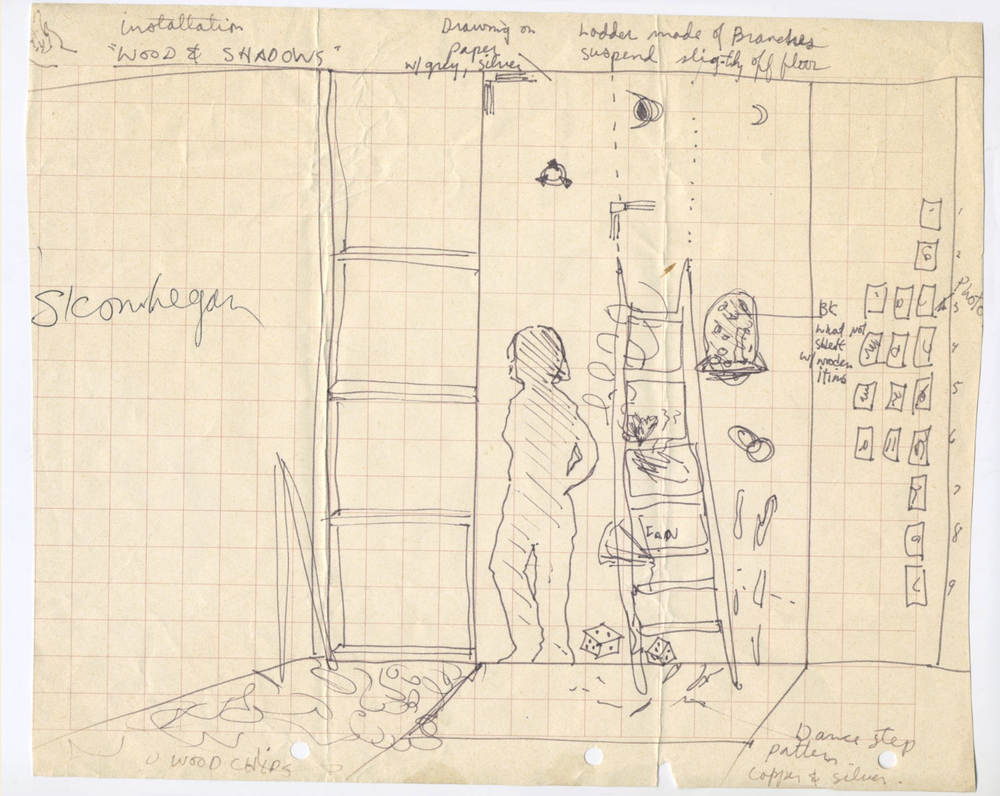 installation
"WOOD & SHADOWS"
Drawing on
paper
w/ grey, silver
Ladder made of Branches
suspend slightly off floor
Skowhegan
Photo
BK
what not
shelf
w/ wooden
items
1
2
3
4
5
6
7
8
9
FAN
WOOD CHIPS
Dance step
pattern
copper & silver.